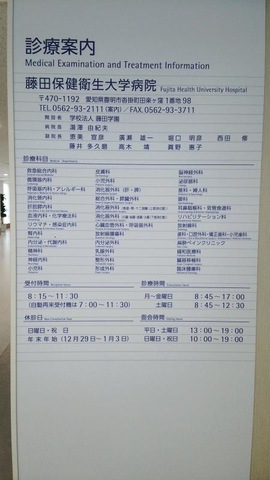 診療案内
Medical Examination and Treatment Information
藤田保健衛生大学病院 Fujita Health University Hospital
〒470-1192 愛知県豊明市沓掛町田楽ヶ窪1番地98
TEL.0562-93-2111(案内)/FAX.0562-93-3711
開設者 学校法人 藤田学園
病院長 湯澤 由紀夫
副院長
藤井 多久磨 高木 靖 眞野 惠子
診療科目
救急総合内科 皮膚科 脳神経外科
循環器内科 小児外科 泌尿器科
呼吸器内科・アレルギー科 消化器外科 産科・婦人科
消化管内科 総合外科・膵臓外科 眼科
肝胆膵内科 耳鼻咽喉科・気管食道科
血液内科・化学療法科 リハビリテーション科
リウマチ・感染症内科 心臓血管外科・呼吸器外科 放射線科
腎内科 放射線腫瘍科 歯科・口腔外科・矯正歯科・小児歯科
内分泌・代謝内科 内分泌外科 麻酔・ペインクリニック
精神科 乳腺外科 緩和医療科
神経内科 整形外科 臓器移植科
小児科 形成外科 臨床腫瘍科
受付時間 診療時間
8:15~11:30 月~金曜日 8:45~17:00
(自動再来受付機は7:00~11:30) 土曜日 8:45~12:30
休診日 面会時間
日曜日・祝日 平日・土曜日 13:00~19:00
年末年始(12月29日~1月3日) 日曜日・祝日 10:00~19:00